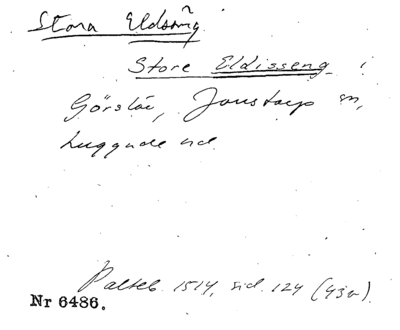 Stora Eldsäng
Store Eldisseng i
Görslöv, Jonstorp sn,
Luggude hd.
Palteb. 1514, sid. 124 (43v)
Nr 6486.